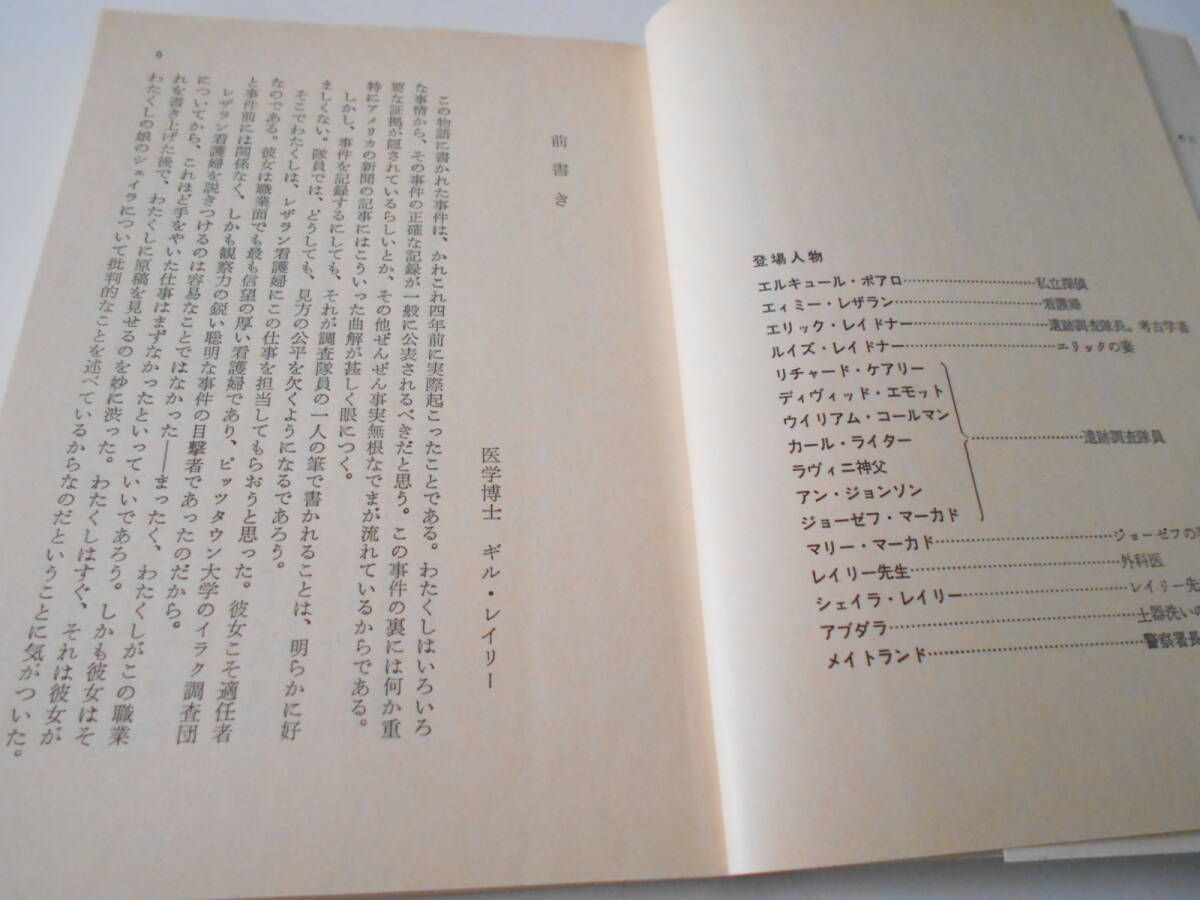 登場人物
エルキュール・ポアロ……………私立探偵
エィミー・レザラン……………看護婦
エリック・レイドナー……………遺跡調査隊長。考古学者
ルイズ・レイドナー……………エリックの妻
リチャード・ケアリー
ディヴィッド・エモット
ウイリアム・コールマン
カール・ライター……………遺跡調査隊員
ラヴィニ神父
アン・ジョンソン
ジョーゼフ・マーカド
マリー・マーカド……………ジョーゼフの
レイリー先生……………外科医
シェイラ・レイリー……………レイリー先
アブダラ……………土器洗いの
メイトランド……………警察署長
前書き
医学博士 ギル・レイリー
この物語に書かれた事件は、かれこれ四年前に実際起こったことである。わたくしはいろいろ
な事情から、その事件の正確な記録が一般に公表されるべきだと思う。この事件の裏には何か重
要な証拠が隠されているらしいとか、その他ぜんぜん事実無根なでまが流れているからである。
特にアメリカの新聞の記事にはこういった曲解が甚しく眼につく。
しかし、事件を記録するにしても、それが調査隊員の一人の筆で書かれることは、明らかに好
ましくない。隊員では、どうしても、見方の公平を欠くようになるであろう。
そこでわたくしは、レザラン看護婦にこの仕事を担当してもらおうと思った。彼女こそ適任者
なのである。彼女は職業面でも最も信望の厚い看護婦であり、ピッツタウン大学のイラク調査団
と事件前には関係なく、しかも観察力の鋭い聡明な事件の目撃者であったのだから。
レザラン看護婦を説きつけるのは容易なことではなかった――まったく、わたくしがこの職業
についてから、これほど手をやいた仕事はまずなかったといっていいであろう。しかも彼女はそ
れを書き上げた後で、わたくしに原稿を見せるのを妙に渋った。わたくしはすぐ、それは彼女が
わたくしの娘のシェイラについて批判的なことを述べているからなのだということに気がついた。